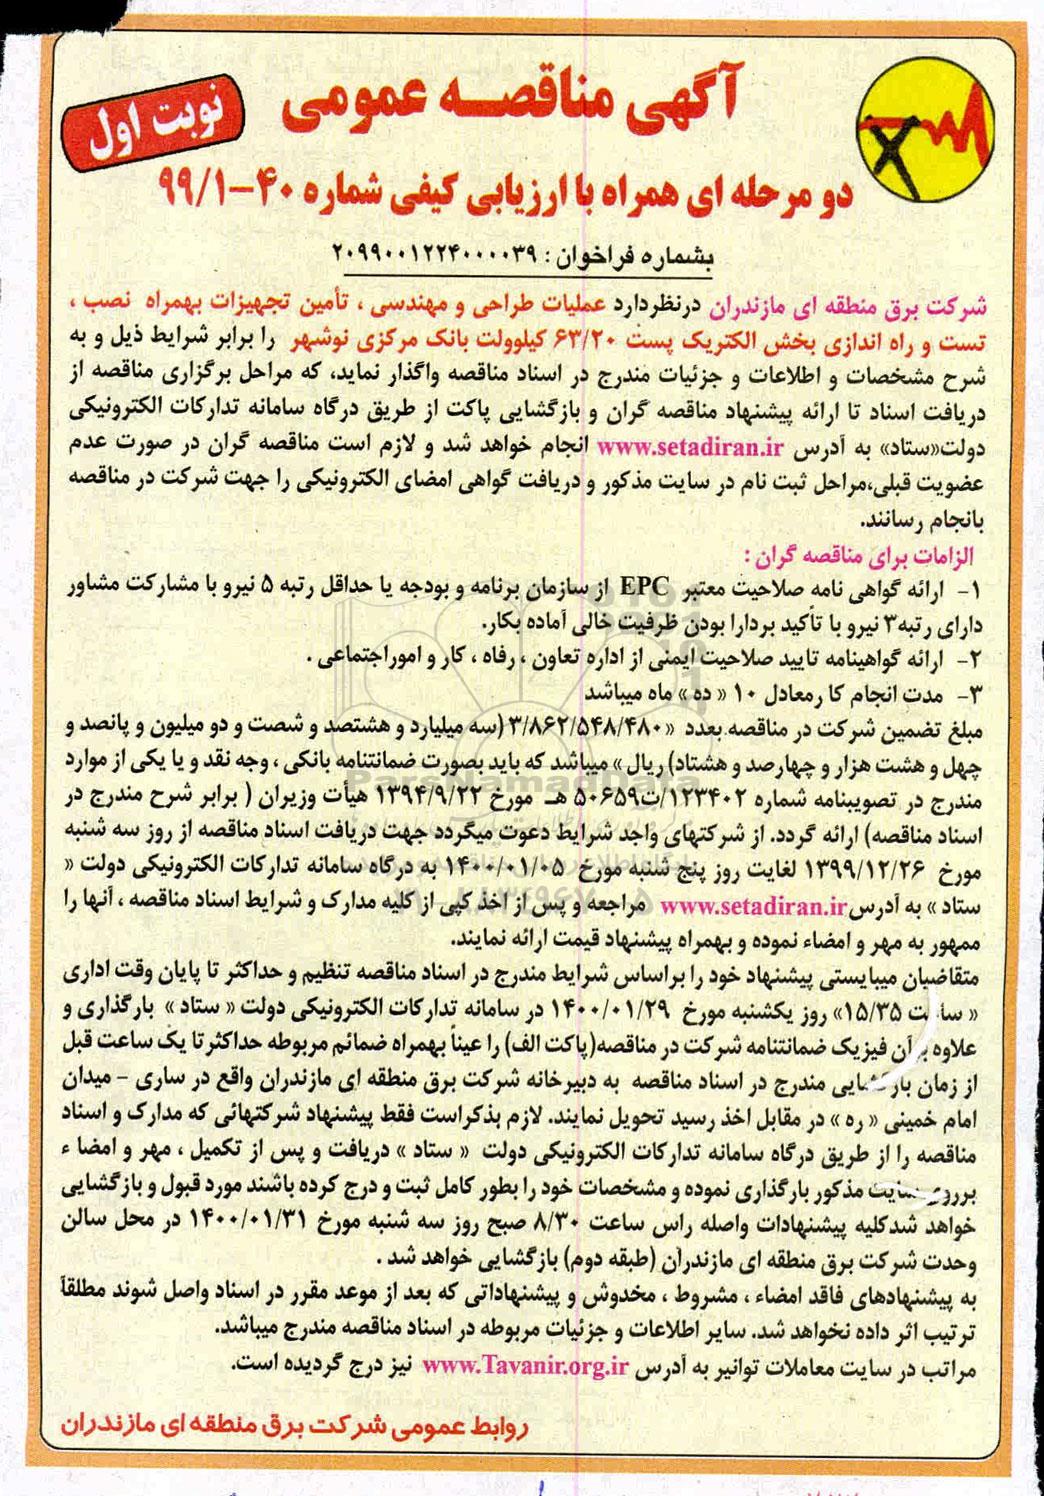 آگهی مناقصه عمومی
نوبت اول
دو مرحله ای همراه با ارزیابی کیفی شماره ۴۰-۹۹/۱
بشماره فراخوان : ۲۰۹۹۰۰۱۲۲۴۰۰۰۰۳۹
شرکت برق منطقه ای مازندران درنظردارد عملیات طراحی و مهندسی ، تأمین تجهیزات بهمراه نصب ،
تست و راه اندازی بخش الکتریک پست ۶۳/۲۰ کیلوولت بانک مرکزی نوشهر را برابر شرایط ذیل و به
شرح مشخصات و اطلاعات و جزئیات مندرج در اسناد مناقصه واگذار نماید، که مراحل برگزاری مناقصه از
دریافت اسناد تا ارائه پیشنهاد مناقصه گران و بازگشایی پاکت از طریق درگاه سامانه تدارکات الکترونیکی
دولت«ستاد» به آدرس www.setadiran.ir انجام خواهد شد و لازم است مناقصه گران در صورت عدم
عضویت قبلی،مراحل ثبت نام در سایت مذکور و دریافت گواهی امضای الکترونیکی را جهت شرکت در مناقصه
بانجام رسانند.
الزامات برای مناقصه گران :
۱- ارائه گواهی نامه صلاحیت معتبر EPC از سازمان برنامه و بودجه یا حداقل رتبه ۵ نیرو با مشارکت مشاور
دارای رتبه۳ نیرو با تأکید بردارا بودن ظرفیت خالی آماده بکار.
۲- ارائه گواهینامه تایید صلاحیت ایمنی از اداره تعاون ، رفاه ، کار و اموراجتماعی .
۳- مدت انجام کا رمعادل ۱۰ « ده » ماه میباشد
مبلغ تضمین شرکت در مناقصه بعدد «۳/۸۶۲/۵۴۸/۴۸۰ (سه میلیارد و هشتصد و شصت و دو میلیون و پانصد و
چهل و هشت هزار و چهارصد و هشتاد) ریال » میباشد که باید بصورت ضمانتنامه بانکی ، وجه نقد و یا یکی از موارد
مندرج در تصویبنامه شماره ۱۲۳۴۰۲/ت۵۰۶۵۹ هـ مورخ ۱۳۹۴/۹/۲۲ هیأت وزیران ( برابر شرح مندرج در
اسناد مناقصه) ارائه گردد. از شرکتهای واجد شرایط دعوت میگردد جهت دریافت اسناد مناقصه از روز سه شنبه
مورخ ۱۳۹۹/۱۲/۲۶ لغایت روز پنج شنبه مورخ ۱۴۰۰/۰۱/۰۵ به درگاه سامانه تدارکات الکترونیکی دولت «
ستاد » به آدرس www.setadiran.ir مراجعه و پس از اخذ کپی از کلیه مدارک و شرایط اسناد مناقصه ، آنها را
ممهور به مهر و امضاء نموده و بهمراه پیشنهاد قیمت ارائه نمایند.
متقاضیان میبایستی پیشنهاد خود را براساس شرایط مندرج در اسناد مناقصه تنظیم و حداکثر تا پایان وقت اداری
« ساعت ۱۵/۳۵» روز یکشنبه مورخ ۱۴۰۰/۰۱/۲۹ در سامانه تدارکات الکترونیکی دولت « ستاد » بارگذاری و
علاوه برآن فیزیک ضمانتنامه شرکت در مناقصه(پاکت الف) را عیناً بهمراه ضمائم مربوطه حداکثرتا یک ساعت قبل
از زمان بازگشایی مندرج در اسناد مناقصه به دبیرخانه شرکت برق منطقه ای مازندران واقع در ساری - میدان
امام خمینی « ره » در مقابل اخذ رسید تحویل نمایند. لازم بذکراست فقط پیشنهاد شرکتهائی که مدارک و اسناد
مناقصه را از طریق درگاه سامانه تدارکات الکترونیکی دولت « ستاد » دریافت و پس از تکمیل ، مهر و امضا ء
برروی سایت مذکور بارگذاری نموده و مشخصات خود را بطور کامل ثبت و درج کرده باشند مورد قبول و بازگشایی
خواهد شدکلیه پیشنهادات واصله راس ساعت ۸/۳۰ صبح روز سه شنبه مورخ ۱۴۰۰/۰۱/۳۱ در محل سالن
وحدت شرکت برق منطقه ای مازندران (طبقه دوم) بازگشایی خواهد شد .
به پیشنهادهای فاقد امضاء ، مشروط ، مخدوش و پیشنهاداتی که بعد از موعد مقرر در اسناد واصل شوند مطلقاً
ترتیب اثر داده نخواهد شد. سایر اطلاعات و جزئیات مربوطه در اسناد مناقصه مندرج میباشد.
مراتب در سایت معاملات توانیر به آدرس www.Tavanir.org.ir نیز درج گردیده است.
روابط عمومی شرکت برق منطقه ای مازندران
ParsNamadData